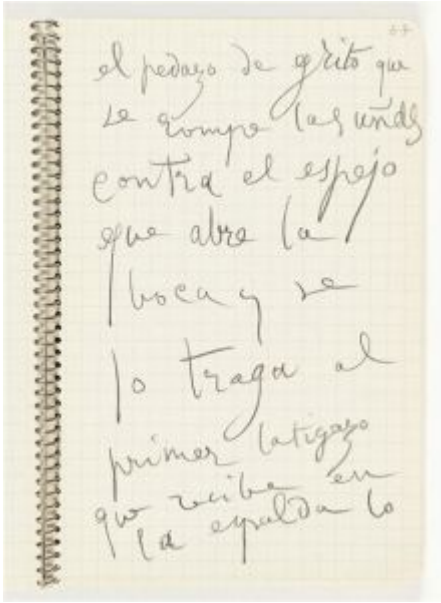 el pedazo de grito que
se rompe las uñas
contra el espejo
que abre la
boca y se
lo traga al
primer latigazo
que recibe en
la espalda lo